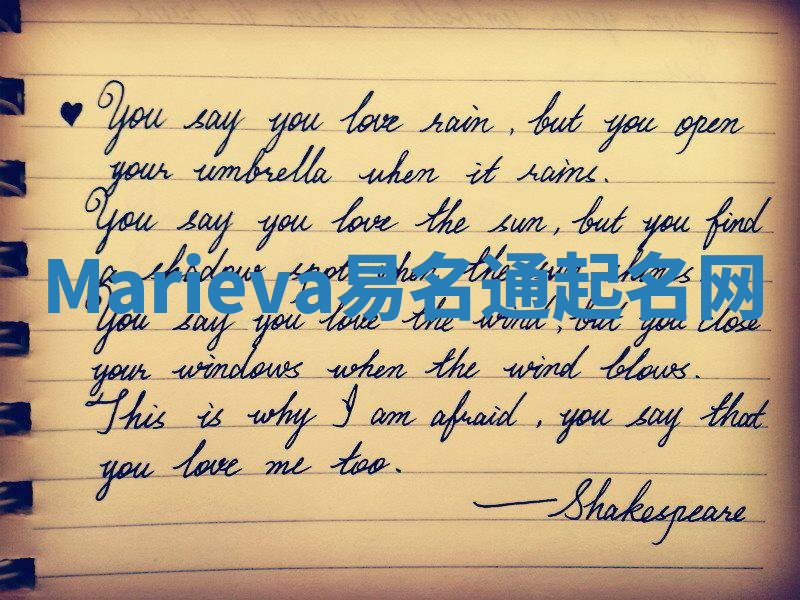 ♥ You say you love rain, but you open
your umbrella when it rains.
You say you love the sun, but you find
a shadow spot when the sun shines
Marieva易名通起名网
You say you love the wind, but you close
your windows when the wind blows.
This is why I am afraid, you say that
you love me too.
— Shakespeare